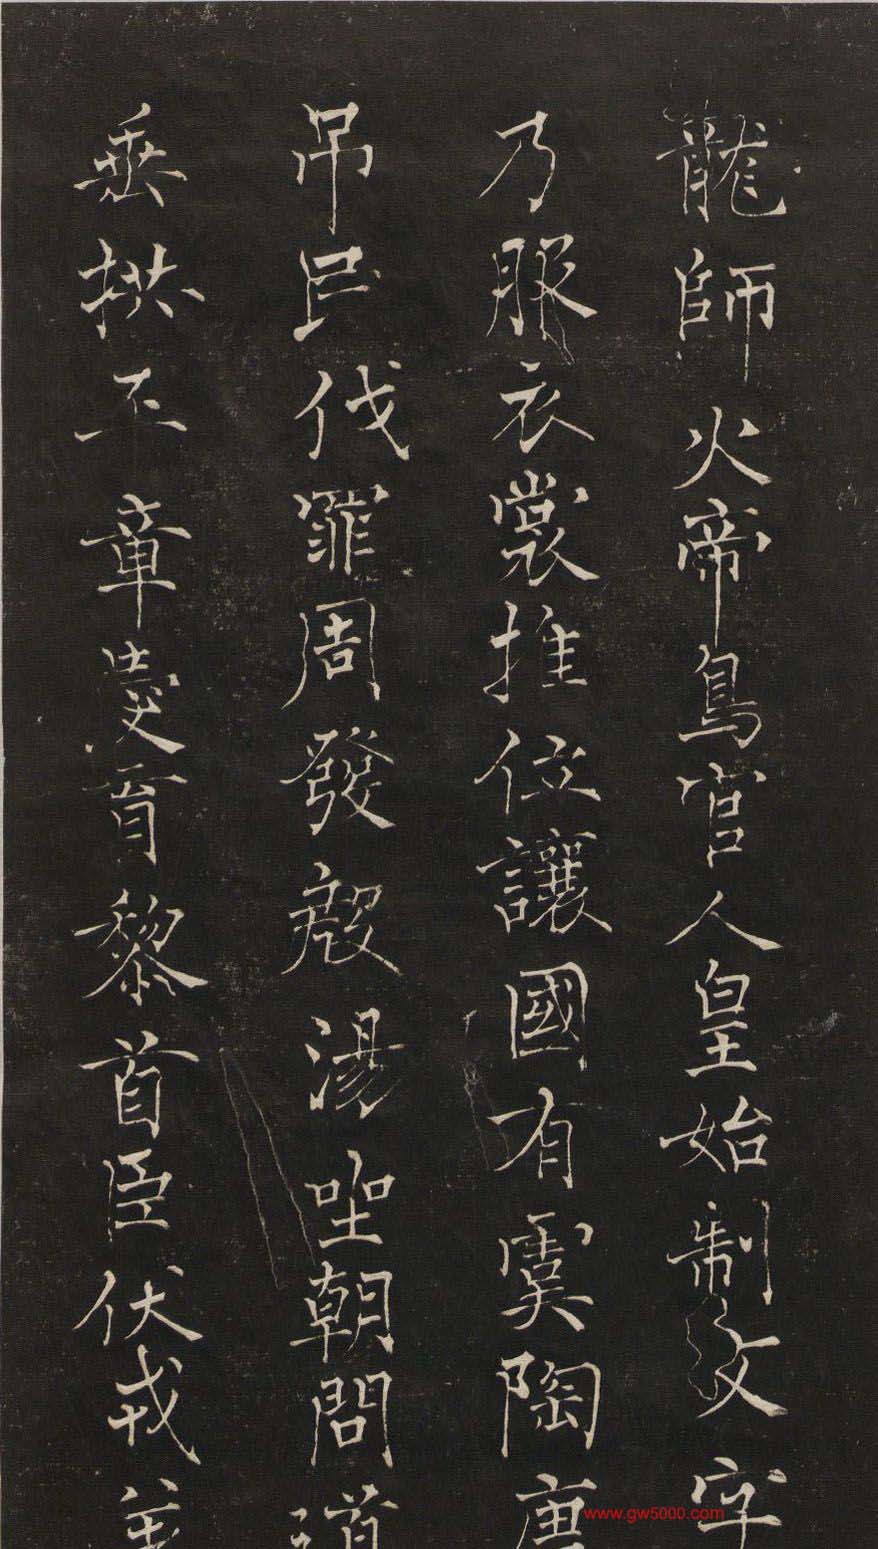 龍師火帝鳥官人皇始制文字
乃服衣裳推位讓國有虞陶唐
吊民伐罪周發殷湯坐朝問道
垂拱平章愛育黎首臣伏戎羌
www.gw5000.com